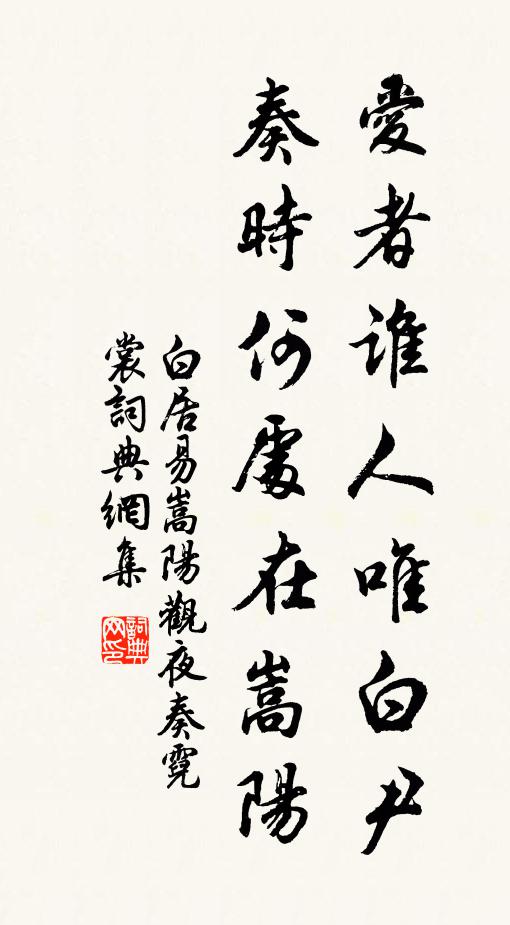 愛者誰人唯白尹
奏時何處在嵩陽
白居易嵩陽觀夜奏霓
裳詞典網集
詞典
网印